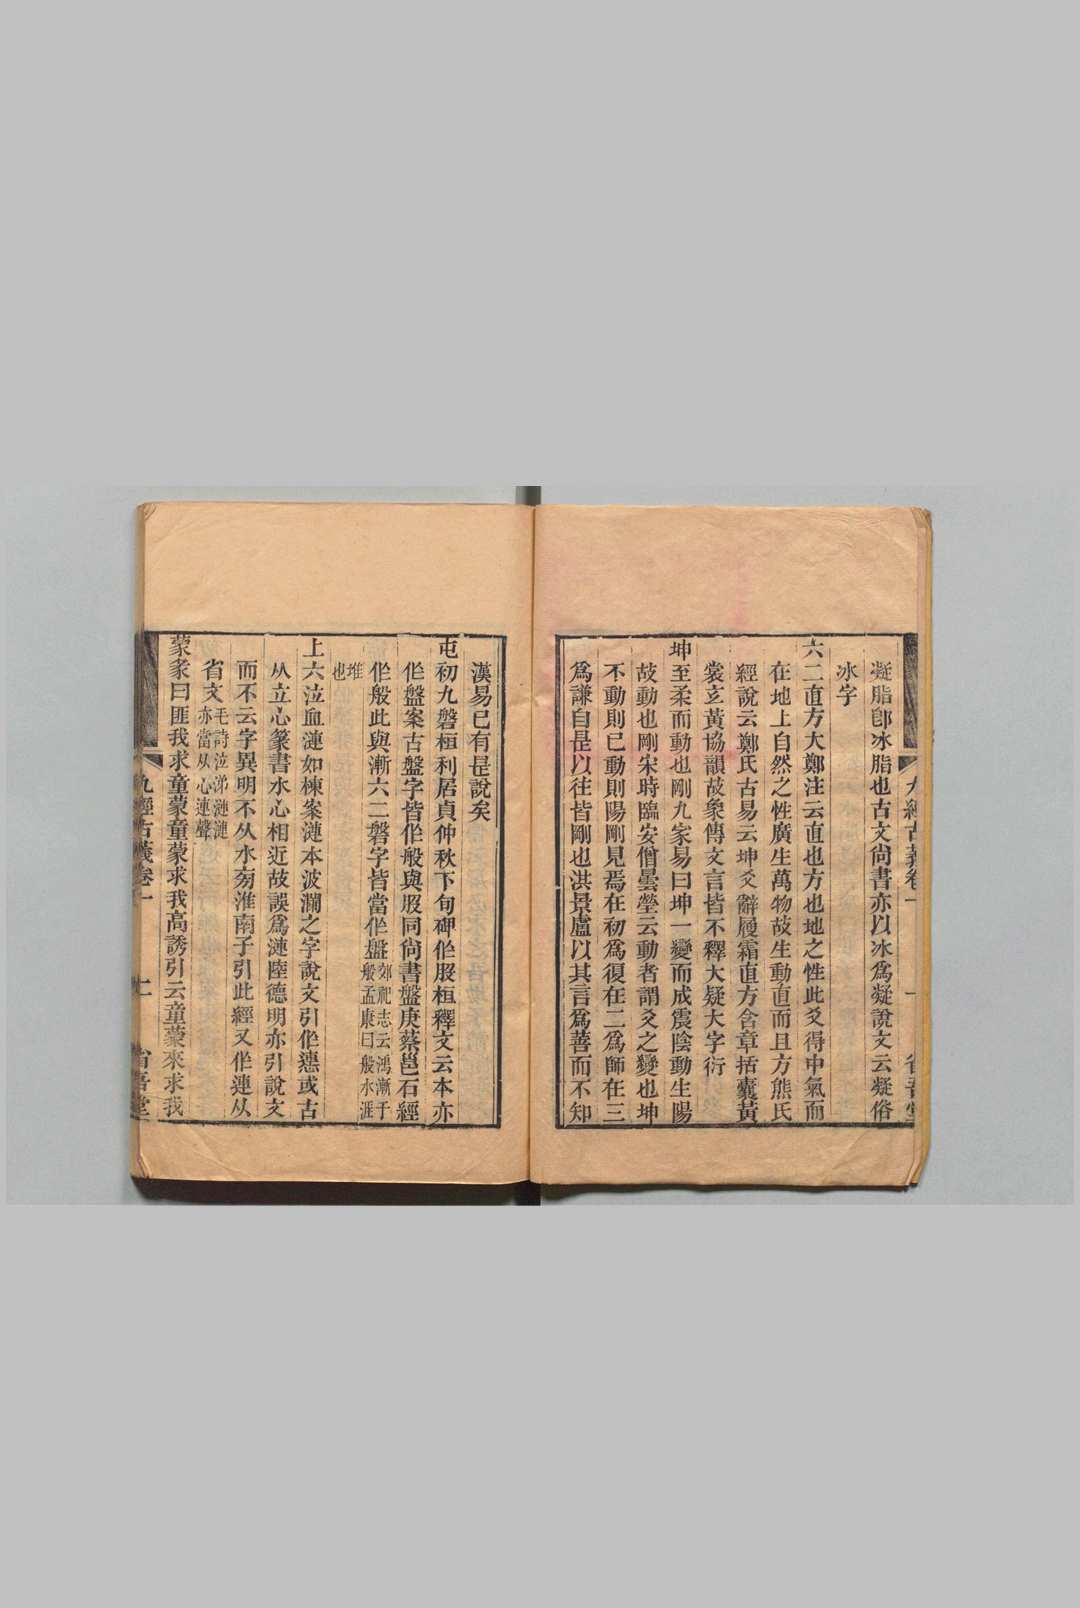 九經古義卷一
一
省吾堂
凝脂卽冰脂也古文尙書亦以冰爲凝說文云凝俗
冰字
六二直方大鄭注云直也方也地之性此爻得中氣而
在地上自然之性廣生萬物故生動直而且方熊氏
經說云鄭氏古易云坤爻辭履霜直方含章括囊黃
裳玄黃協韻故象傳文言皆不釋大疑大字衍
坤至柔而動也剛九家易曰坤一變而成震陰動生陽
故動也剛宋時臨安僧曇瑩云動者謂爻之變也坤
不動則已動則陽剛見焉在初爲復在二爲師在三
爲謙自是以往皆剛也洪景盧以其言爲善而不知
漢易已有是說矣
屯初九磐桓利居貞仲秋下旬碑作股桓釋文云本亦
作盤案古盤字皆作般與股同尙書盤庚蔡邕石經
作般此與漸六二磐字皆當作盤郊祀志云鴻漸于般孟康曰般水涯
堆也
上六泣血漣如棟案漣本波瀾之字說文引作㦁或古
从立心篆書水心相近故誤爲漣陸德明亦引說文
而不云字異明不从水旁淮南子引此經又作連从
省文毛詩泣涕漣漣亦當从心連聲
蒙彖曰匪我求童蒙童蒙求我高誘引云童蒙來求我
九經古義卷一
二
省吾堂